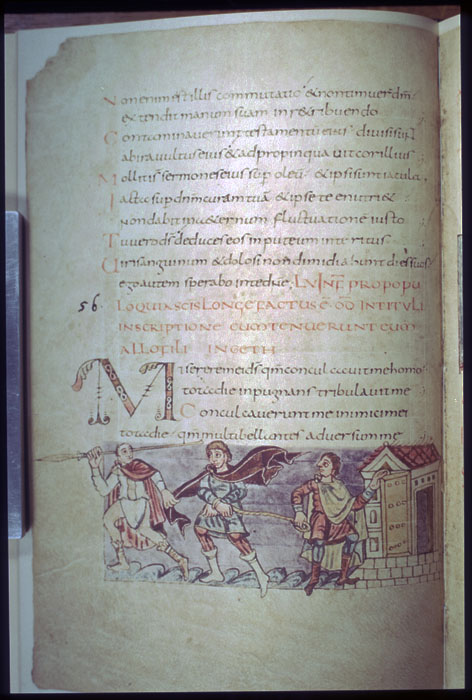 Non enim est illis commutatio & non timuer dm
extendit manum suam in retribuendo
Contaminaverunt testamentu eius divisi st
ab ira vultus eius & adpropinquavit cor illius
Molliti sermones eius sup oleu & ipsi sunt iacula
Iacta sup dnm curam tuā & ipse te enutri&
Non dabit in &ernum fluctuatione iusto
Tu vero ds deduces eos in puteum interitus
Viri sanguinum & dolosi non dimidiabunt dies suos
ego autem sperabo in te dne; LV IN F PRO POPU
56 LO QUI A SCIS LONGE FACTUS Ē DD IN TITULI
INSCRIPTIONE CUM TENUERUNT EUM
ALLOFILI IN GETH
Miserere mei ds qm conculcavit me homo
tota die inpugnans tribulavit me
Conculcaverunt me inimici mei
tota die qm multi bellantes adversum me